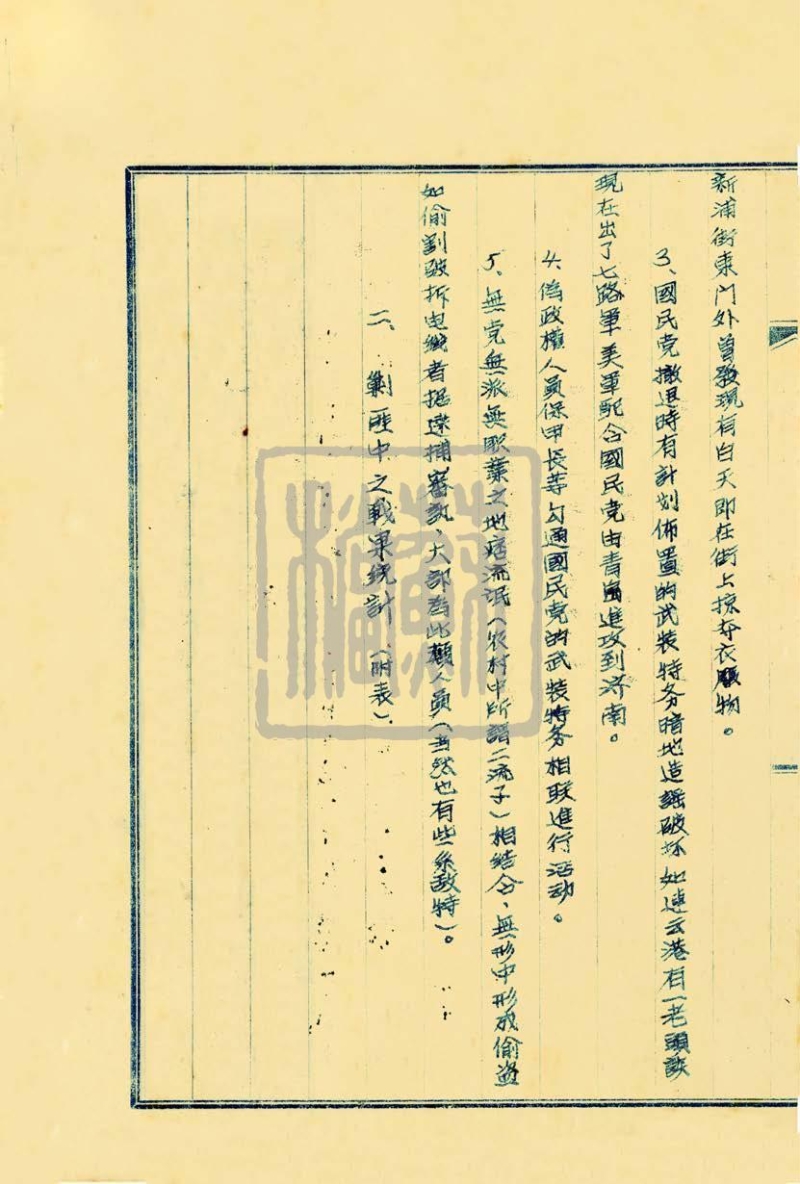 新浦街東门外曾發現有白天即在街上掠夺衣服物。
3、國民党撤退時有計划佈置的武装特务暗地造謡破坏如連云港有一老頭談
現在出了七路軍美軍配合國民党由青島進攻到济南。
4、偽政權人员保甲長等勾通國民党的武装特务相联進行活动。
5、無党無派無职業之地痞流氓（农村中所謂二流子）相结合、無形中形成偷盗
如偷割破拆电线者据逮捕審訊、大部為此類人員（当然也有些系敌特）。
二、剿匪中之戰果统計（附表）.